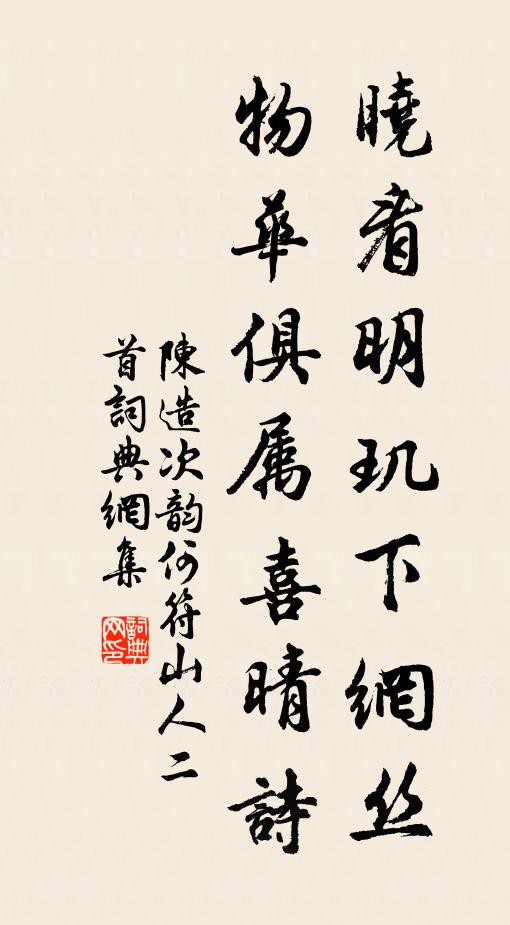 曉看明玑下網丝
物華俱属喜晴詩
陳造次韵何符山人二
首詞典網集
詞典网印